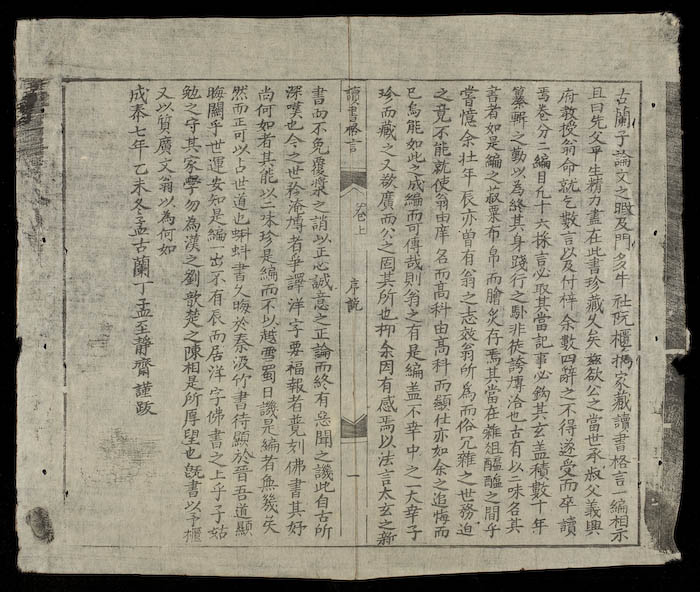 古蘭子論文之暇及門多牛社阮櫃携家藏讀書格言一編相示
且曰先父平生精力盡在此書珍藏久矣茲欲公之當世承叔父義興
府教授翁命就乞數言以及付梓余數四辭之不得遂受而卒讀
焉卷分二編目凡十六採言必取其當記事必鈎其玄盖積數十年
纂輯之勤以為終其身踐行之 非徒誇博洽也古有以二味名其
書者如是編之菽粟布帛而膾炙存焉其當在雜俎醯醢之間乎
嘗憶余壮年辰亦曾有翁之志效翁所為而俗冗雜之世務迫
之竟不能就使翁由庠名而高科由高科而顯仕亦如余之追悔而
已烏能如此之成編而可傳哉則翁之有是編盖不幸中之一大幸子
珍而藏之又欲廣而公之固其所也抑余因有感焉以法言太玄之新
讀書格言 卷上 序說 一
書而不免覆瓿之誚以正心誠意之正論而終有忌聞之譏此自古所
深嘆也今之世務淹博者爭譯洋字要福報者競刻佛書其好
尚何如者其能以二味珍是編而不以越雪蜀日譏是編者無幾矣
然而正可以占世道也蝌蚪書久晦於秦汲竹書待顯於晋吾道顯
晦關乎世運安知是編一出不有辰而居洋字佛書之上乎子姑
勉之守其家學勿為漢之劉歆楚之陳相是所厚望也旣書以予櫃
又以質廣文翁以為何如
成泰七年乙未冬孟古蘭丁孟至靜齋謹跋